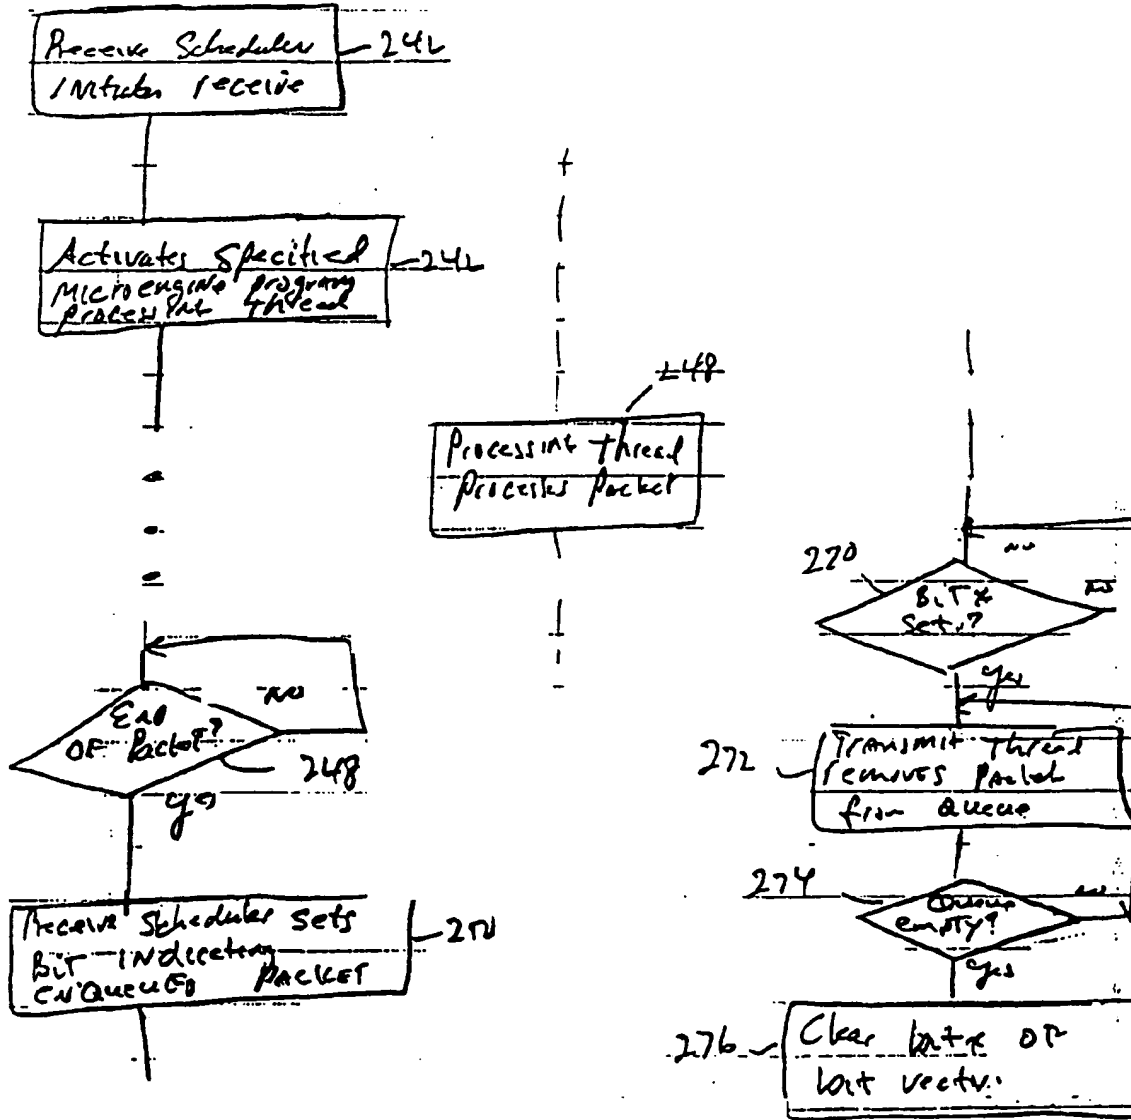 Receive Scheduler
Initiates receive
242
Activates Specified
Microengine program
processing thread
248
Processing thread
Processes Packet
End
OF Packet?
NO
248
yes
Receive Scheduler sets
Bit indicating
enqueued PACKET
250
270
BiT x
Set?
NO
NO
yes
272
Transmit Thread
removes Packet
from Queue
274
Queue
empty?
NO
yes
276
Clear bit x OF
bit vector